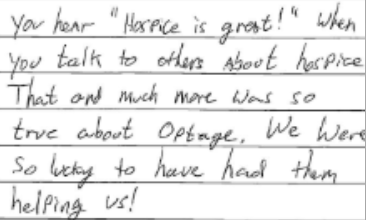 You hear "Hospice is great!" When
you talk to others about hospice
That and much more was so
true about Optage. We were
So lucky to have had them
helping us!